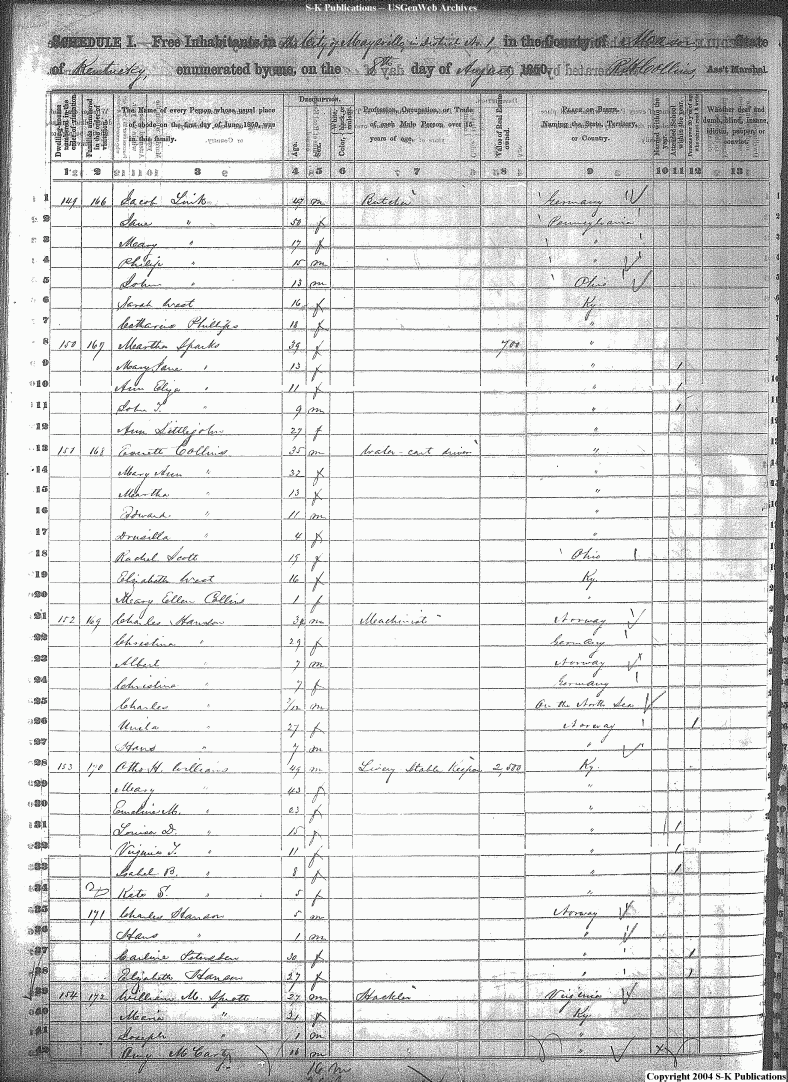 S-K Publications – USGenWeb Archives
SCHEDULE I. Free Inhabitants in the City of Maysville in district No. 1 in the County of Mason State
of Kentucky enumerated by me, on the 8th day of August 1850. Ass't Marshal
Dwelling-houses numbered in the order of visitation. Families numbered in the order of visitation. The Name of every Person whose usual place of abode on the first day of June, 1850, was in this family. Description. Age. Sex. Color, Profession, Occupation, or Trade of each Male Person over 15 years of age. Value of Real Estate owned. Place of Birth. Naming the State, Territory, or Country. Whether deaf and dumb, blind, insane, idiotic, pauper, or convict.
1 2 3 4 5 6 7 8 9 10 11 12 13
1 149 166 Jacob Link 47 m Butcher Germany
2 Jane " 50 f Pennsylvania
3 Mary " 17 f "
4 Philip " 15 m "
5 John " 13 m Ohio
6 Sarah West 16 f Ky
7 Catharine Phillips 18 f "
8 150 167 Martha Sparks 39 f 700 "
9 Mary Jane " 13 f " 1
10 Ann Eliza " 11 f " 1
11 John T. " 9 m " 1
12 Ann Littlejohn 27 f
13 151 168 Everett Collins 35 m Water-cart driver "
14 Mary Ann " 32 f "
15 Martha " 13 f "
16 Edward " 11 m "
17 Drusilla " 4 f "
18 Rachel Scott 19 f Ohio
19 Elizabeth West 16 f Ky.
20 Mary Ellen Collins 1 f "
21 152 169 Charles Hanson m Machinist Norway
22 Christina " 29 f Germany
23 Albert " 7 m Norway
24 Christina " 7 f Germany
25 Charles " m On the North Sea
26 " 27 f Norway 1
27 Hans " 7 m "
28 153 170 Otho H. Williams 49 m Livery Stable Keeper 2,500 Ky
29 Mary " 43 f "
30 Emeline M. " 23 f "
31 Louisa D. " 15 f " 1
32 Virginia T. " 11 f " 1
33 Isabel B. " 8 f " 1
34 Kate S. " 5 f "
35 171 Charles Hanson 5 m Norway
36 Hans " 1 m "
37 Petersen 30 f " 1
38 Elizabeth Hanson 27 f " 1
39 154 172 William M. 27 m Virginia
40 Maria " 21 f Ky.
41 Joseph " 1 m "
42 Amy McCarty 16 m "
16 m
Copyright 2004 S-K Publications